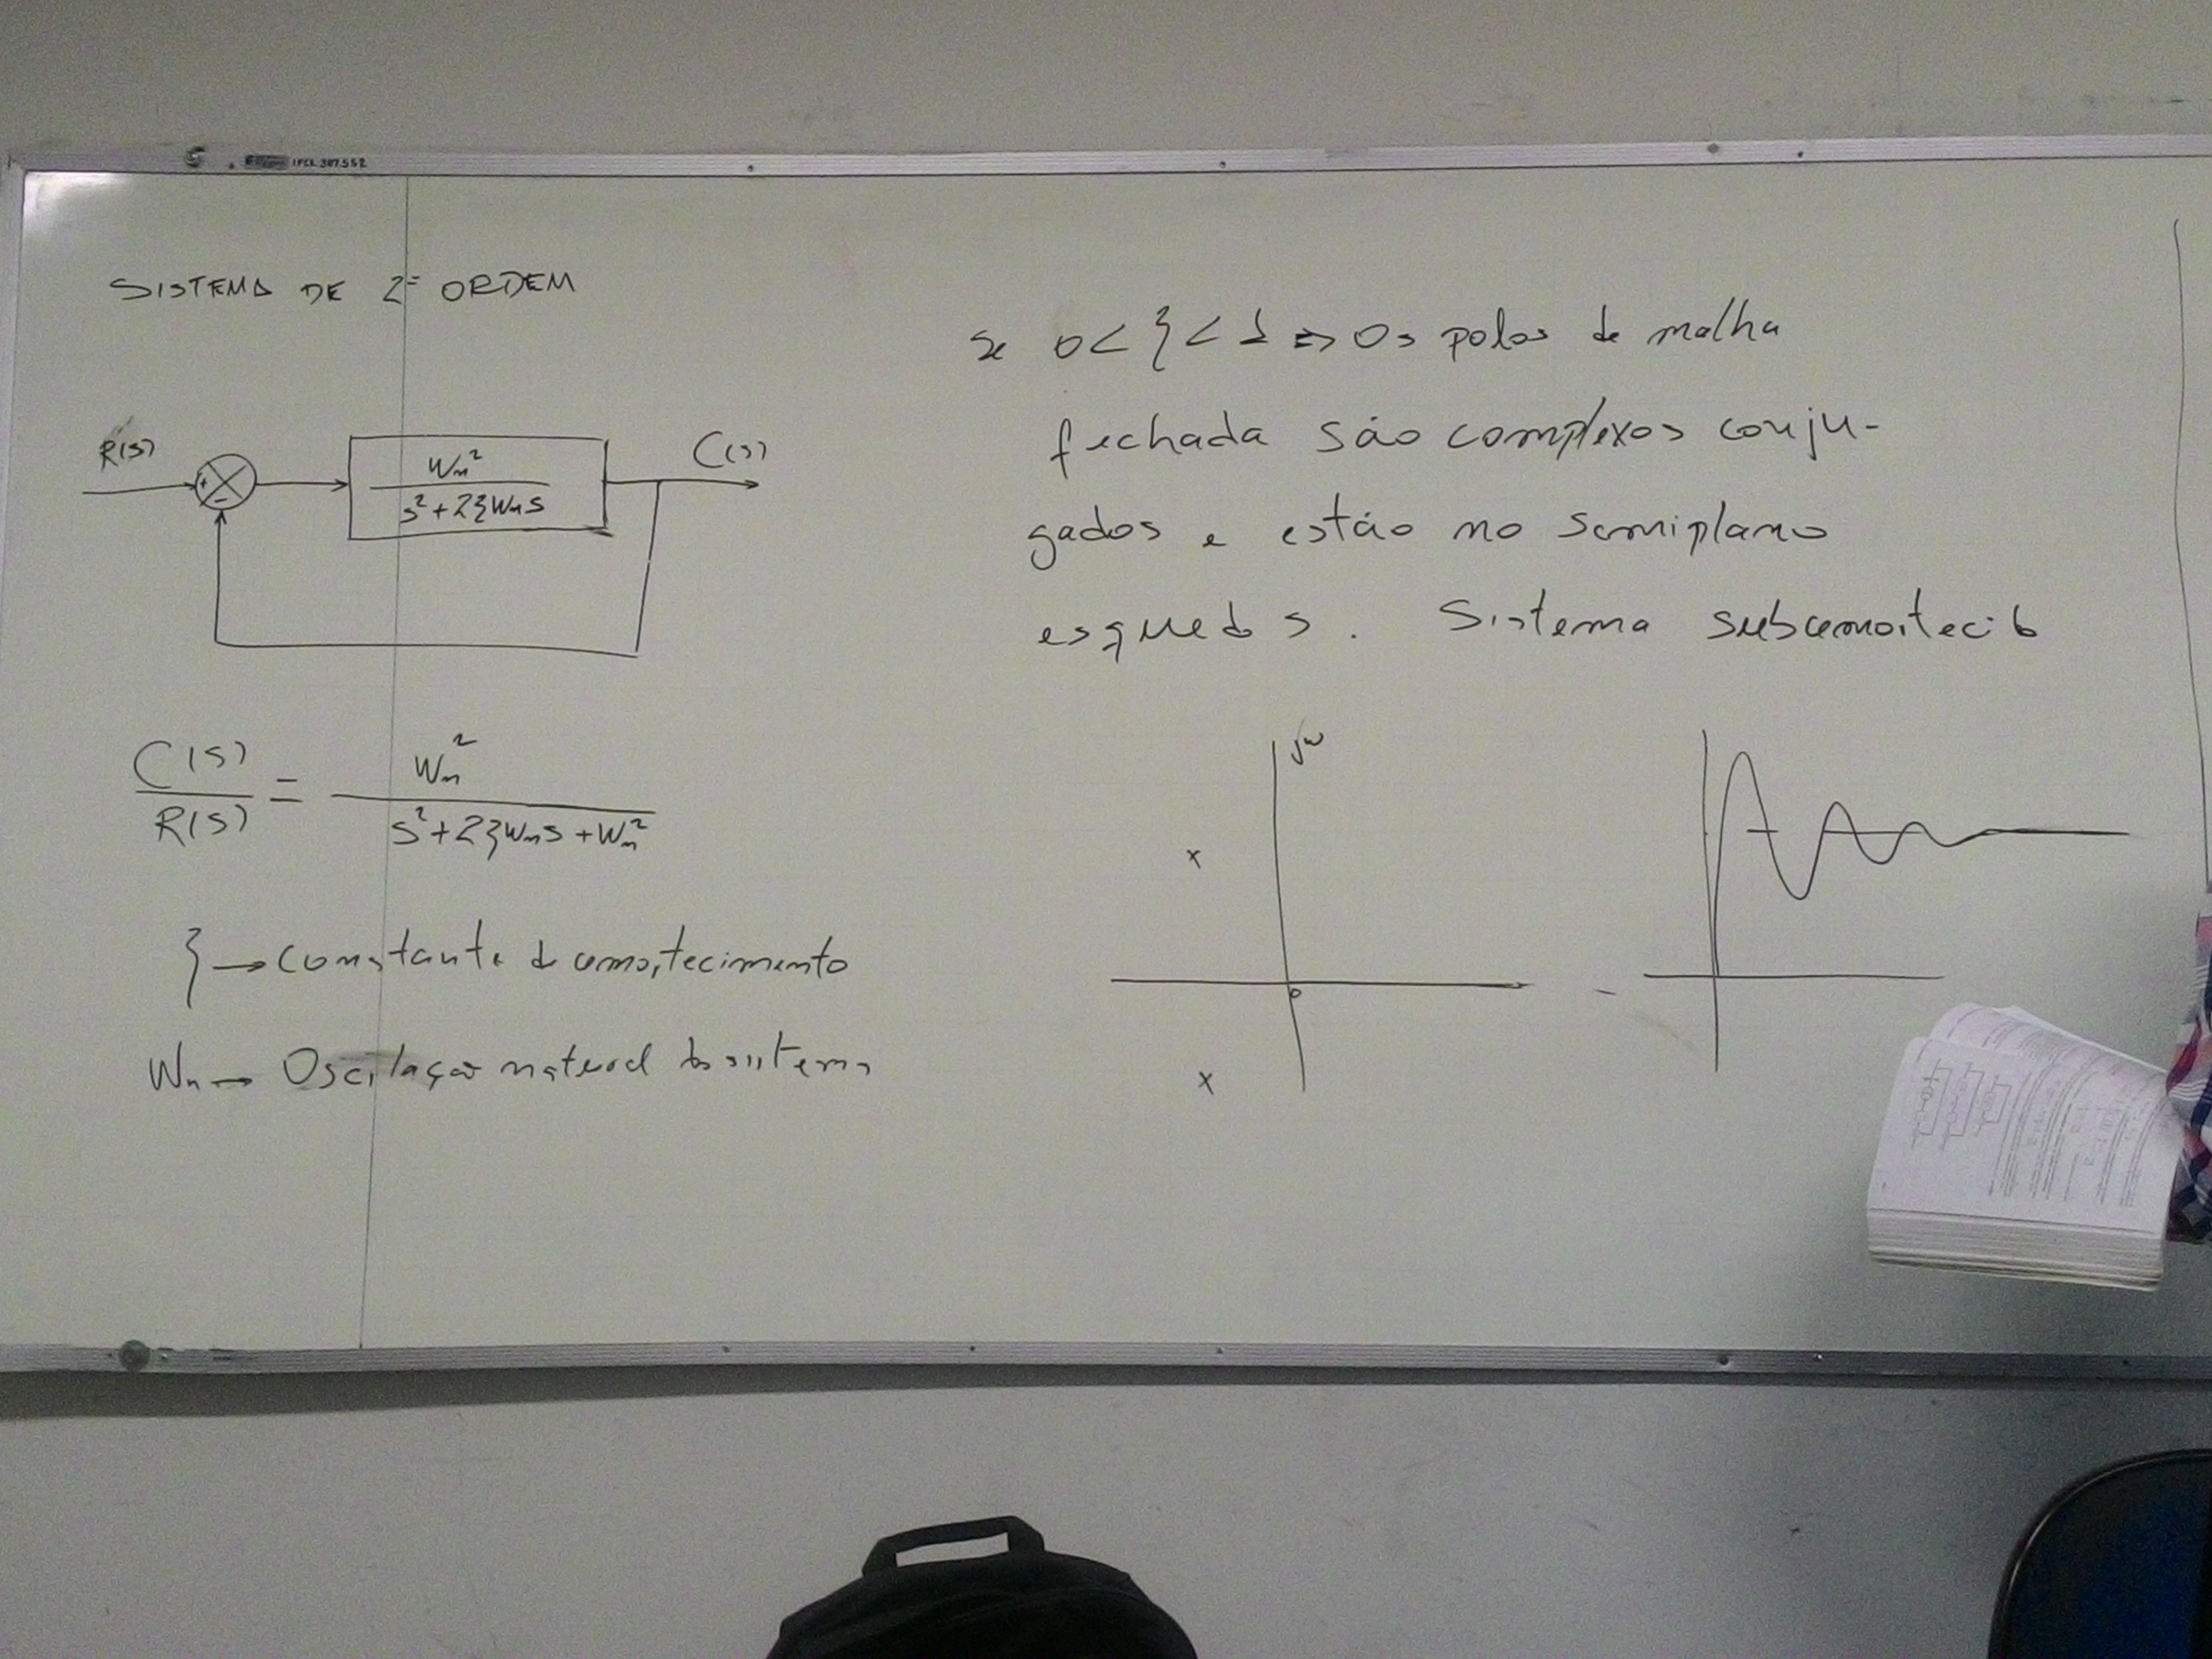 1PCL 307.552
SISTEMA DE 2ª ORDEM
R(S)
+
-
Wn²
s²+2ξWns
C(s)
C(S)
R(S)
=
Wn²
s²+2ξWns+Wn²
ξ → constante de amortecimento
Wn → Oscilação natural do sistema
Se 0<ξ<1 => Os polos de malha
fechada são complexos conju-
gados e estão no semiplano
esquerdo s. Sistema subamortecido
jw
x
0
x